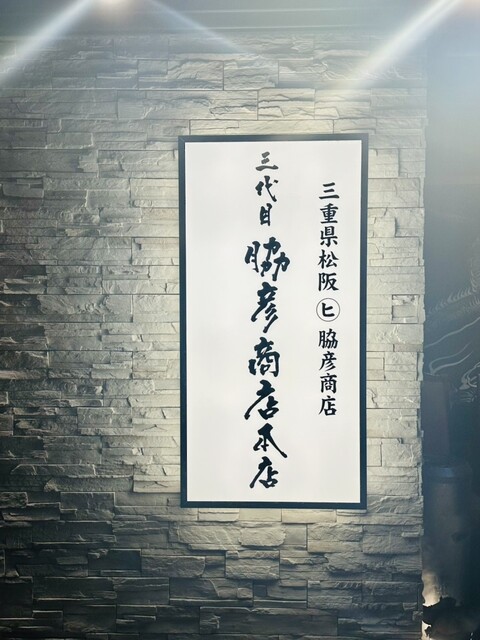 三重県松阪 ㋪ 脇彦商店
三代目 脇彦商店本店